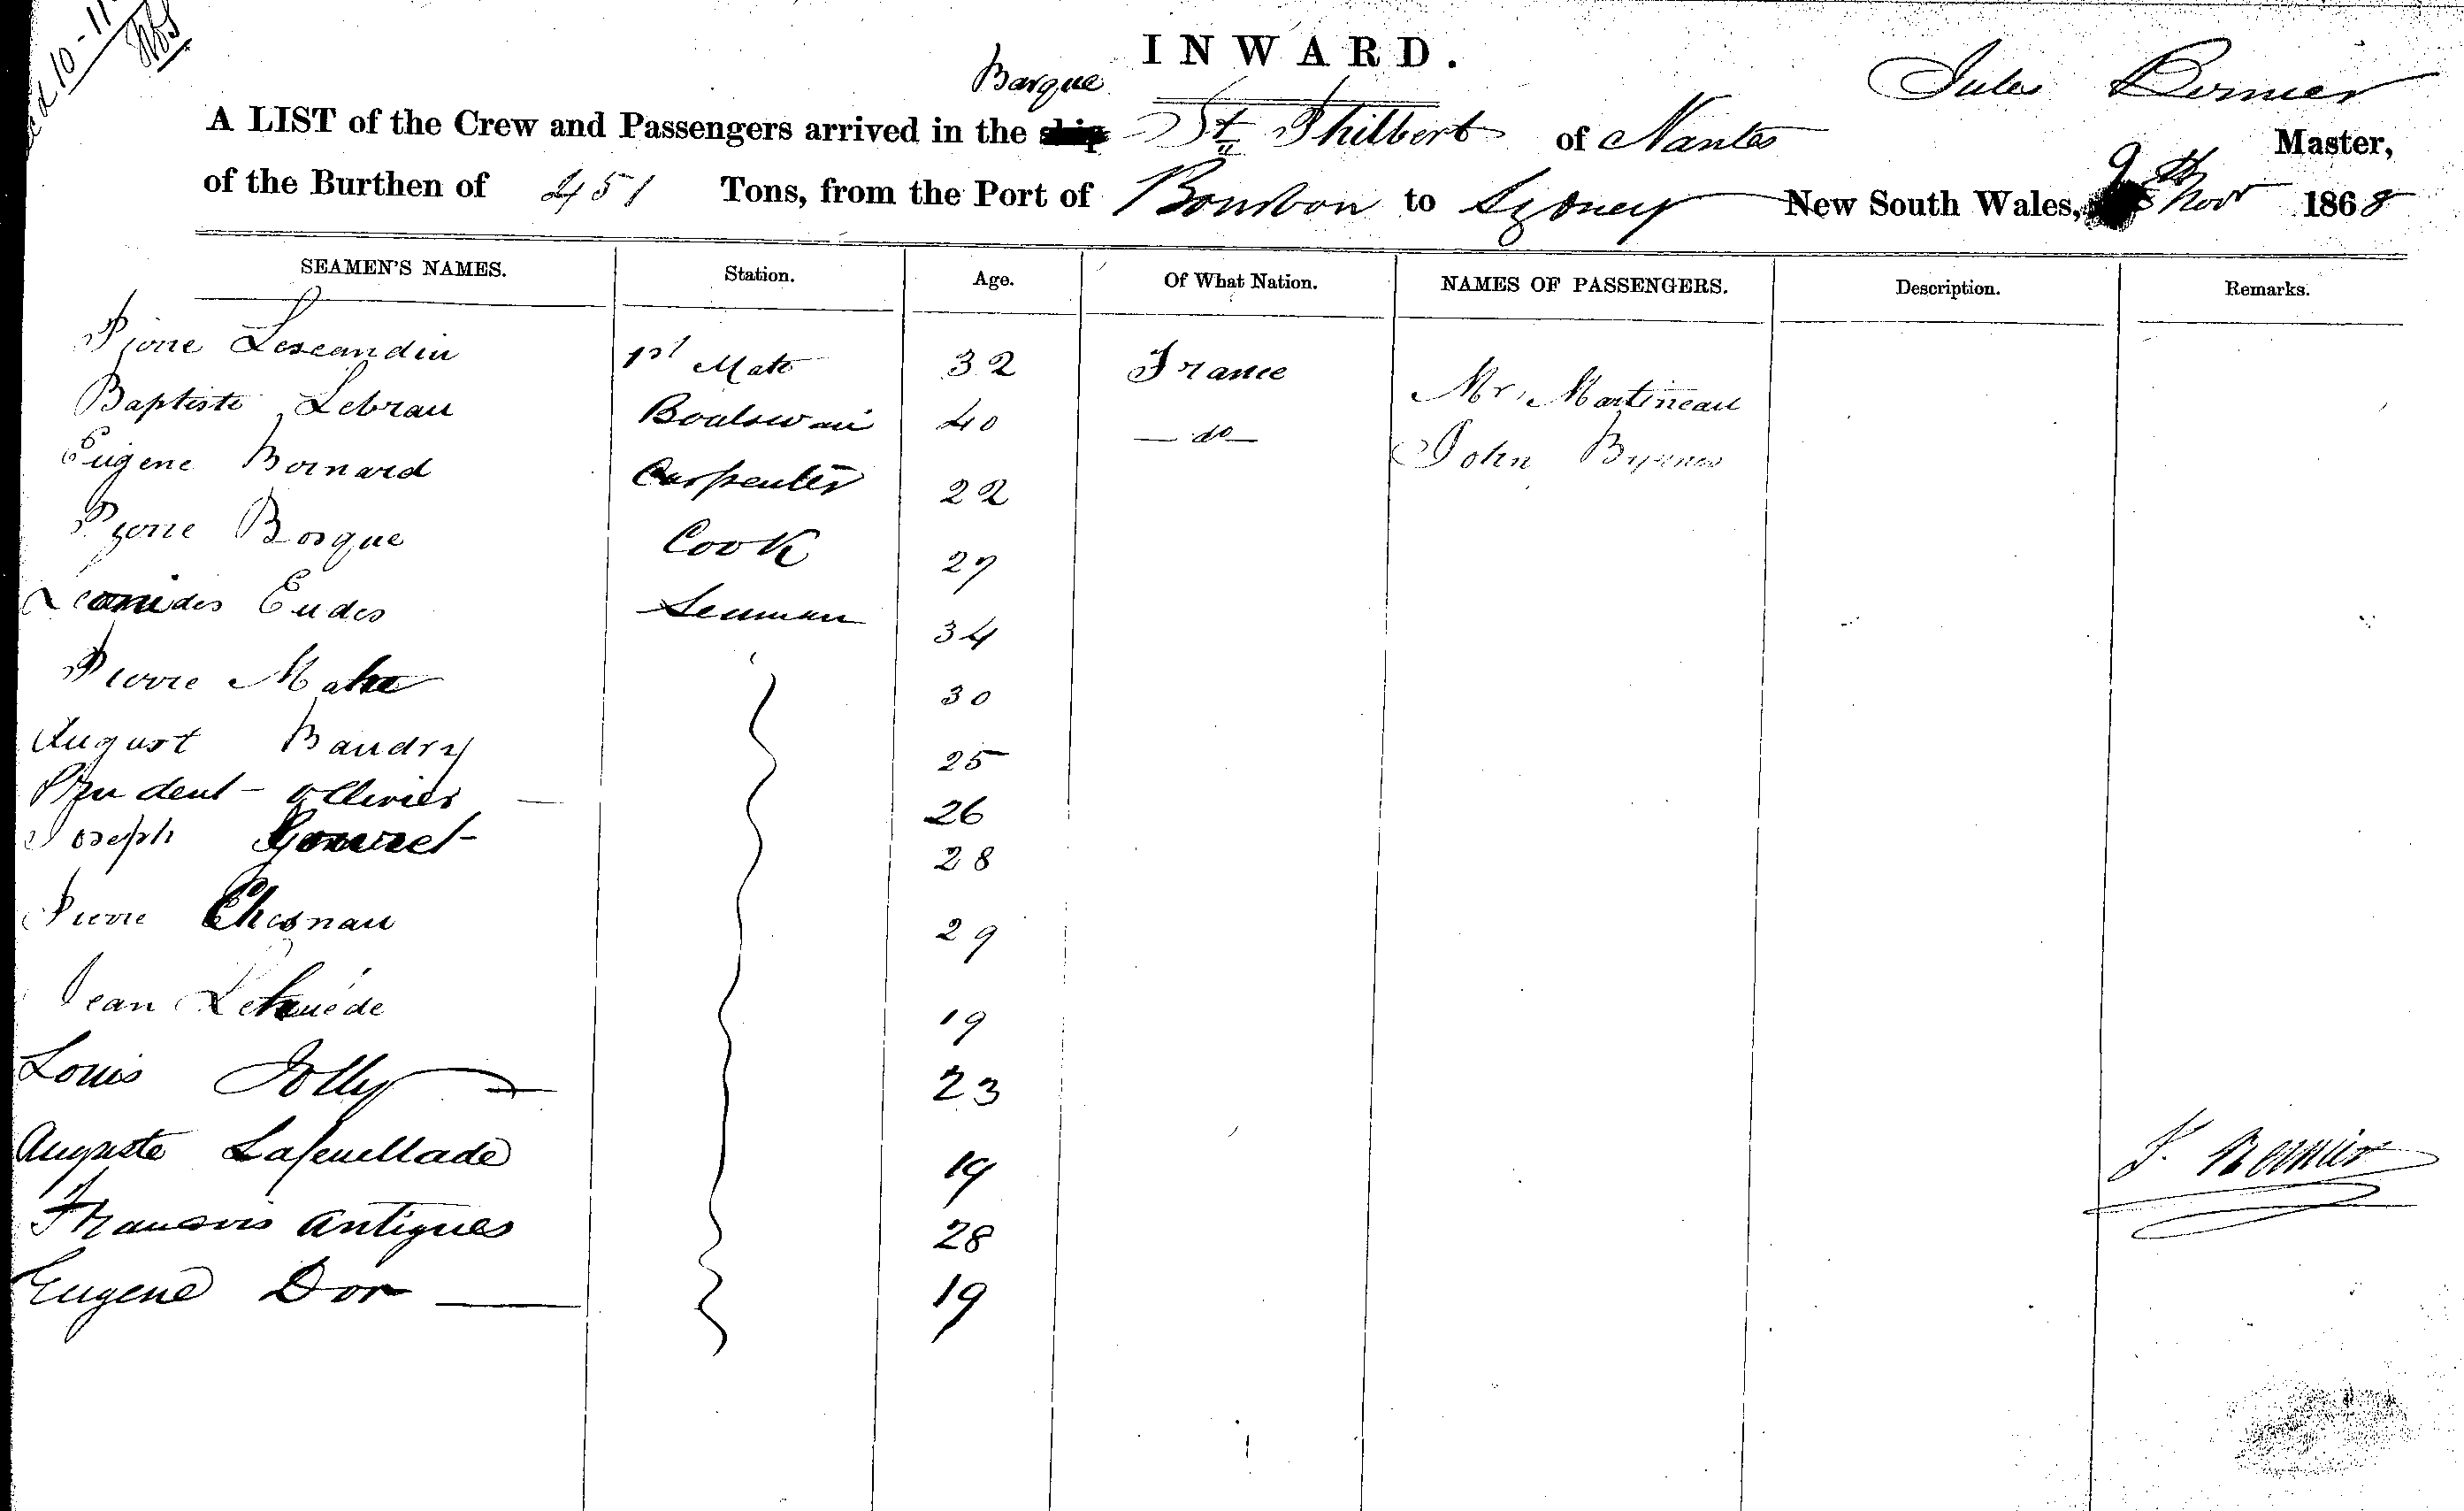 INWARD.
Barque
Jules Bernier
A LIST of the Crew and Passengers arrived in the ship St Philbert of Nantes Master,
of the Burthen of 451 Tons, from the Port of Bourbon to Sydney New South Wales, 9th Nov 1868
SEAMEN'S NAMES. Station. Age. Of What Nation. NAMES OF PASSENGERS. Description. Remarks.
Pierre Lescandin 1st Mate 32 France Mr. Martineau
Baptiste Lebrau Boatswain 40 — do — John Byrnes
Eugene Bernard Carpenter 22
Pierre Bosque Cook 27
Leonides Eudes Seaman 34
Pierre Mahe 30
August Baudry 25
Prudent Ollivier — 26
Joseph Gouret 28
Pierre Chesnau 29
Jean Lehuéde 19
Louis Jolly 23
Auguste Lafeuillade 19
J. Bernier
Francois Antiques 28
Eugene Dor — 19